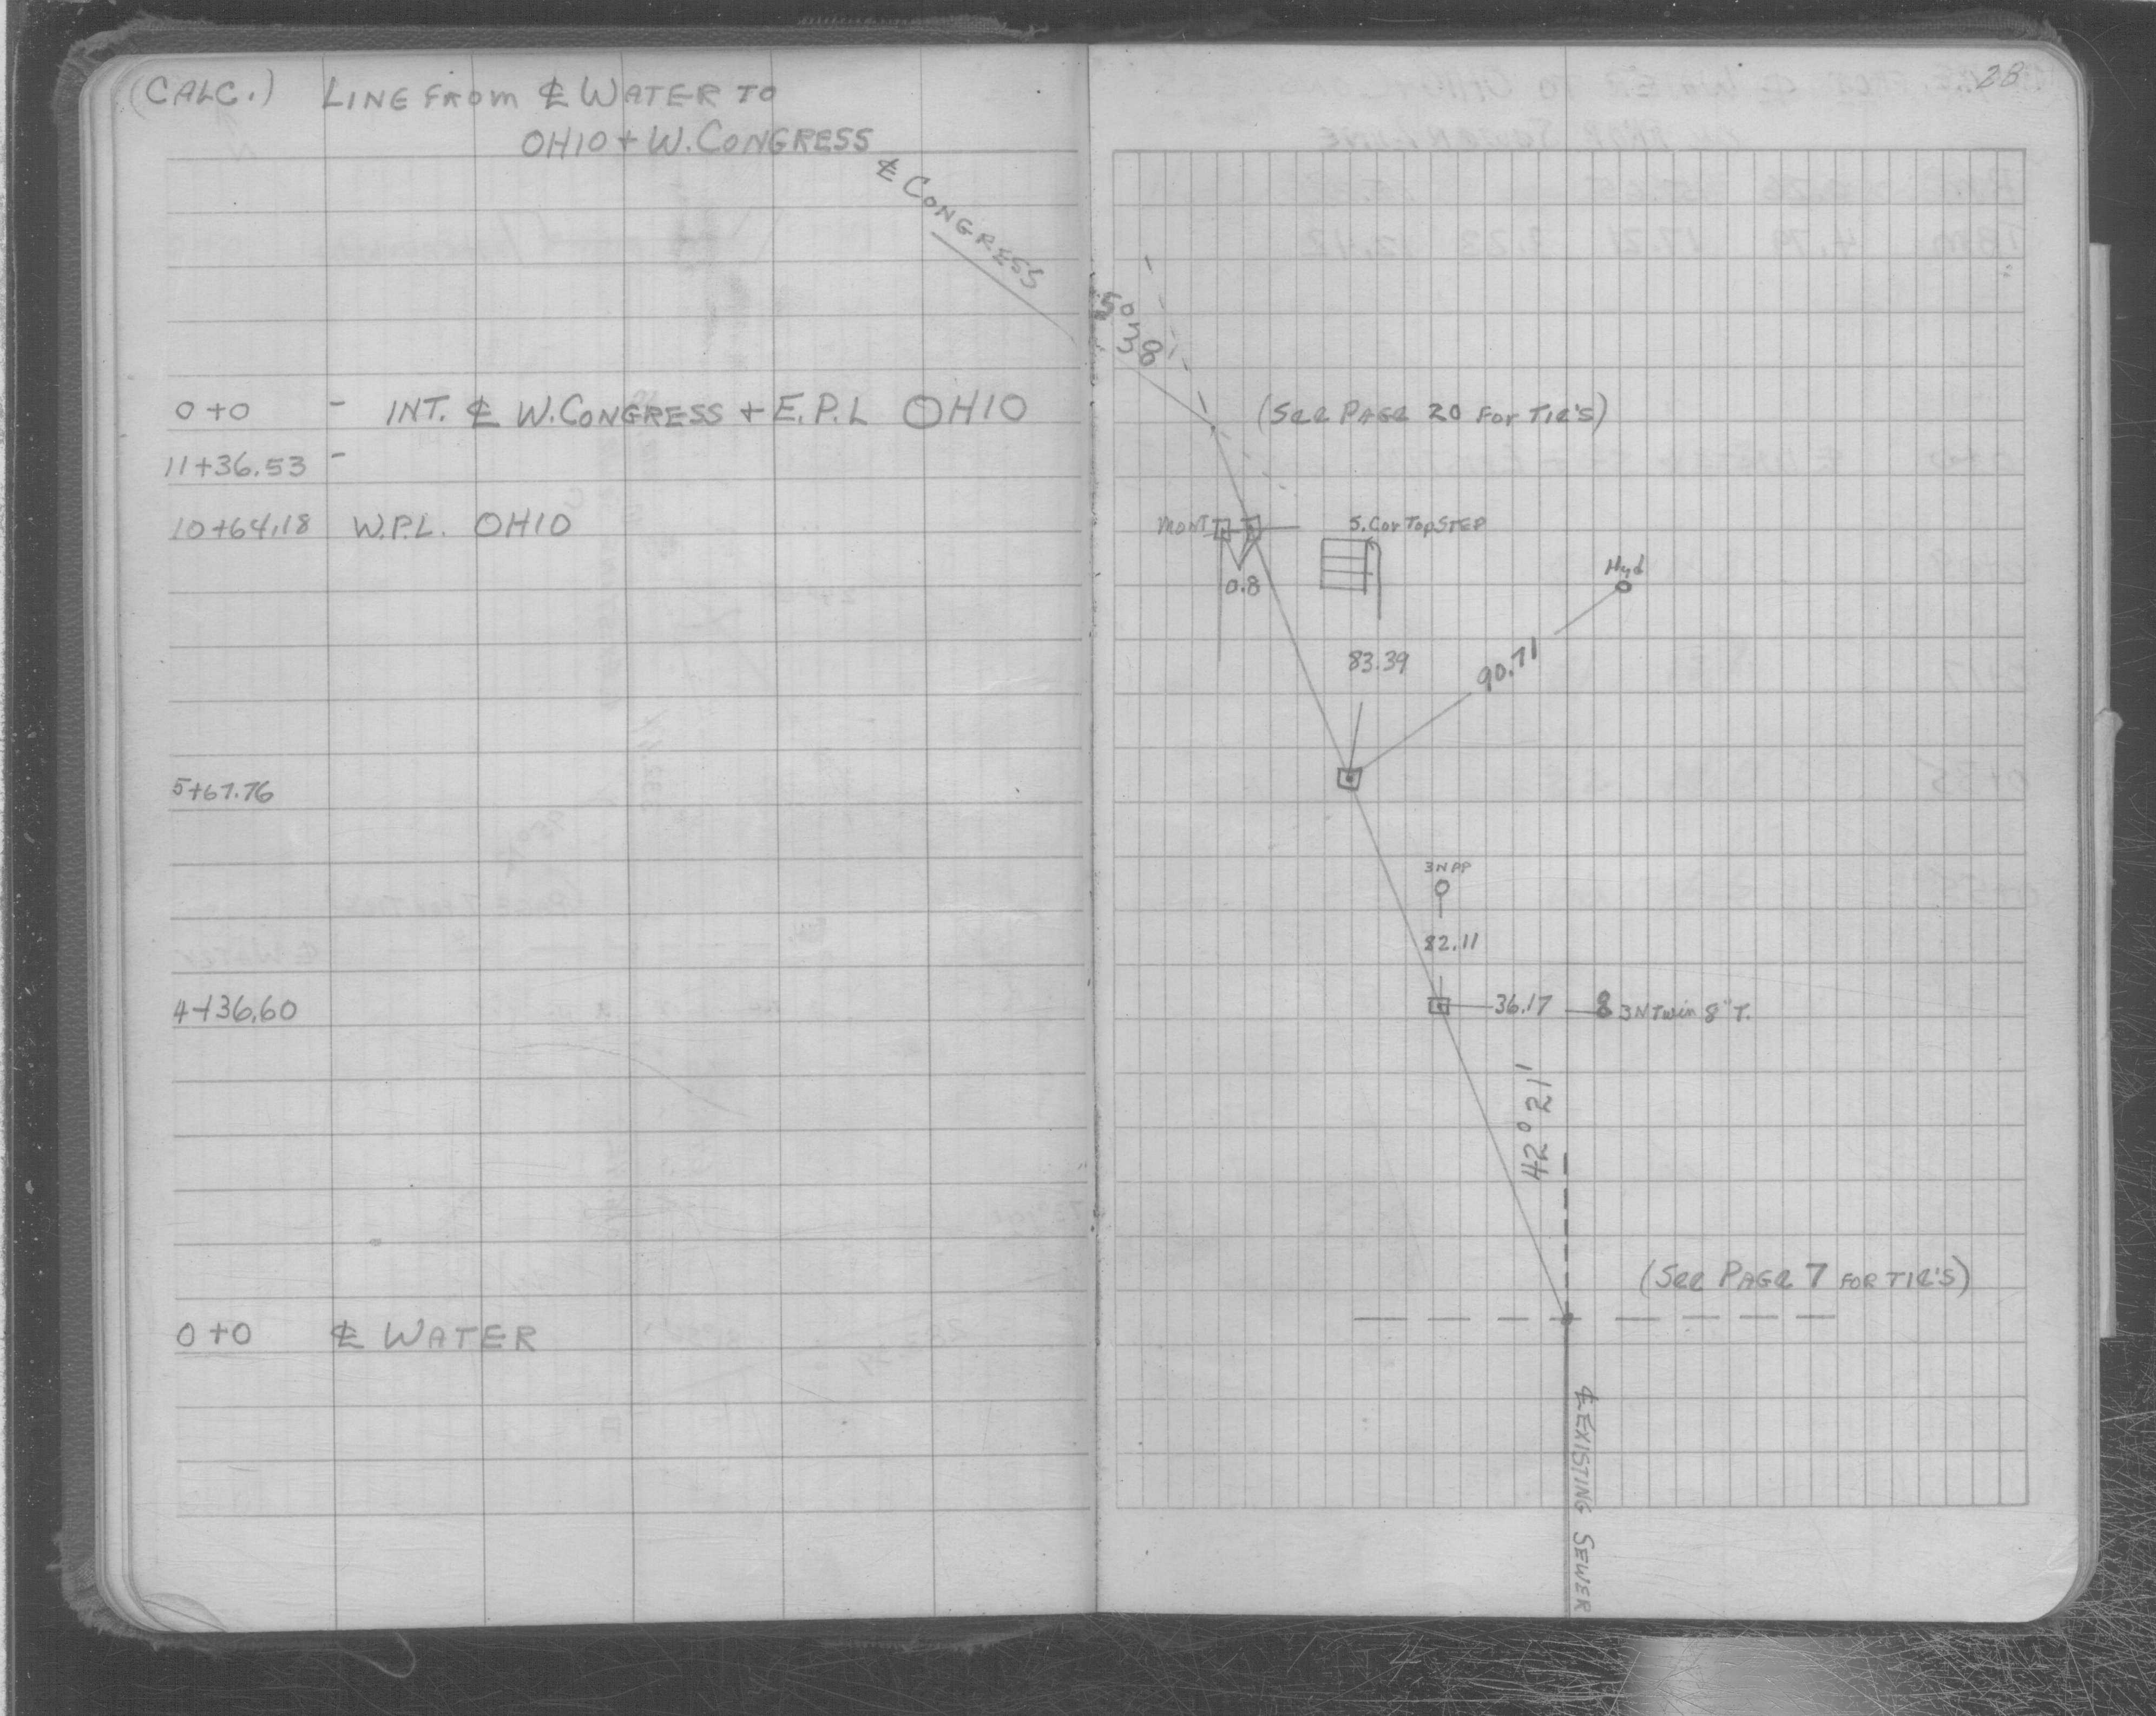 (CALC.) LINE FROM ℄ WATER TO
OHIO + W. CONGRESS
℄ CONGRESS
0+0 - INT. ℄ W. CONGRESS + E.P.L OHIO
11+36.53 -
10+64.18 W.P.L. OHIO
5+67.76
4+36.60
0+0 ℄ WATER
28
5° 38
(See PAGe 20 For TIe's)
MONT
0.8
S. Cor Top STEP
Hyd
83.39
90.71
3N PP
82.11
36.17
3N Twin 8" T.
42° 21'
(See PAGe 7 FOR TIe'S)
℄ EXISTING SEWER